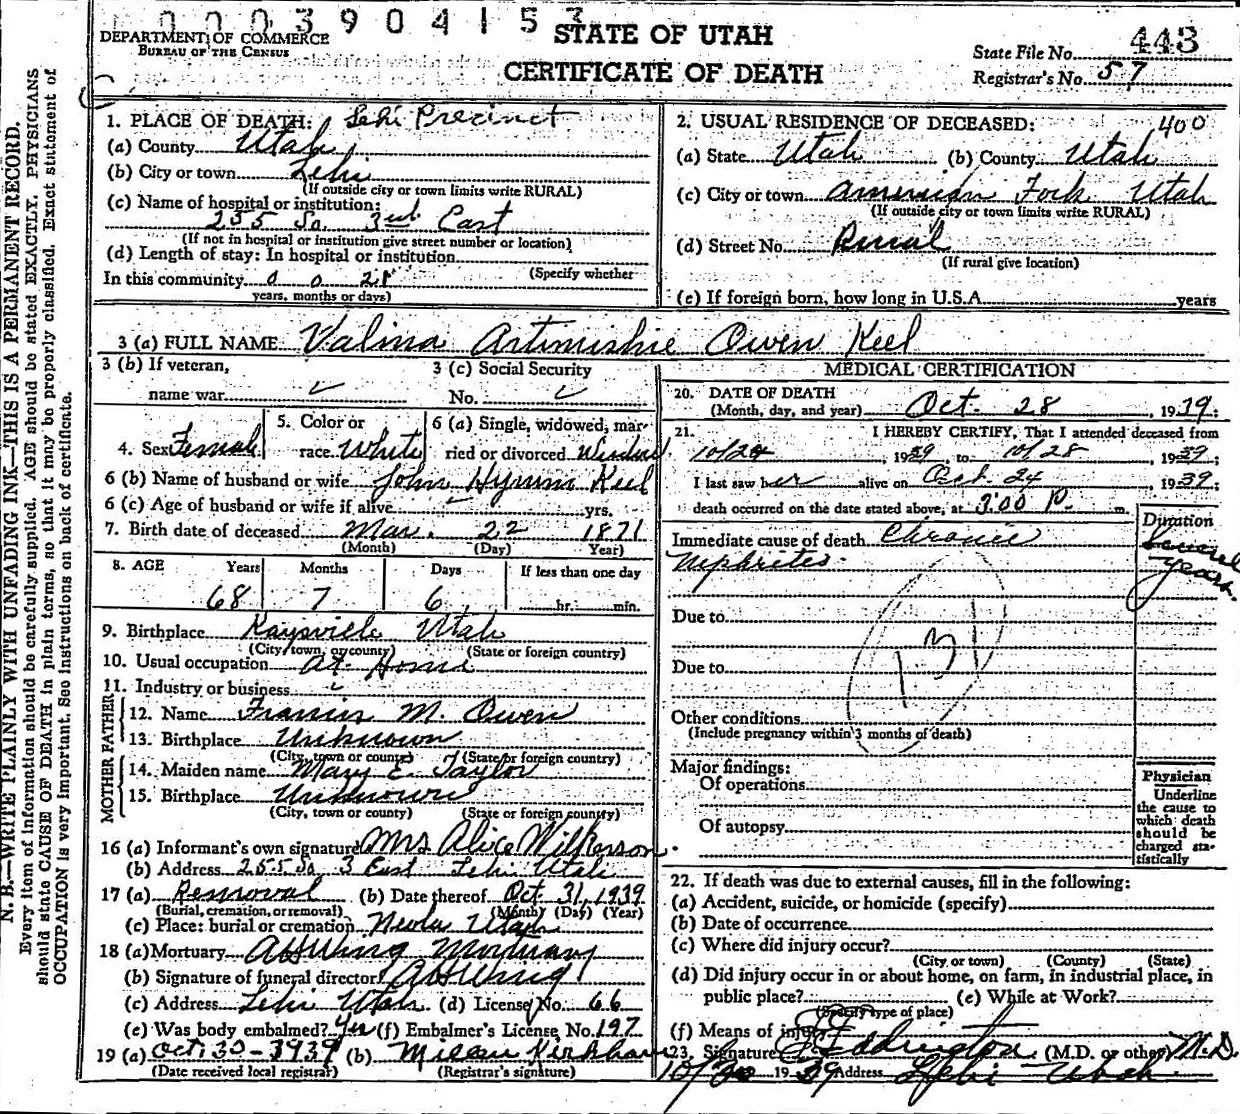 0003904153
DEPARTMENT OF COMMERCE
BUREAU OF THE CENSUS
STATE OF UTAH
CERTIFICATE OF DEATH
State File No. 443
Registrar's No. 57
N. B.—WRITE PLAINLY WITH UNFADING INK—THIS IS A PERMANENT RECORD.
Every item of information should be carefully supplied. AGE should be stated EXACTLY. PHYSICIANS
should state CAUSE OF DEATH in plain terms, so that it may be properly classified. Exact statement of
OCCUPATION is very important. See instructions on back of certificate.
1. PLACE OF DEATH: Lehi Precinct
(a) County Utah
(b) City or town Lehi
(If outside city or town limits write RURAL)
(c) Name of hospital or institution:
255 So. 3rd East
(If not in hospital or institution give street number or location)
(d) Length of stay: In hospital or institution
(Specify whether
In this community 0 0 28
years, months or days)
2. USUAL RESIDENCE OF DECEASED: 400
(a) State Utah (b) County Utah
(c) City or town American Fork Utah
(If outside city or town limits write RURAL)
(d) Street No. Rural
(If rural give location)
(e) If foreign born, how long in U.S.A. years
3 (a) FULL NAME Valina Artimishie Owen Keel
3 (b) If veteran,
name war
3 (c) Social Security
No.
4. Sex Female
5. Color or
race White
6 (a) Single, widowed, mar-
ried or divorced Widowed
6 (b) Name of husband or wife John Hyrum Keel
6 (c) Age of husband or wife if alive yrs.
7. Birth date of deceased Mar. 22 1871
(Month) (Day) Year)
8. AGE Years Months Days If less than one day
68 7 6 hr. min.
9. Birthplace Kaysville Utah
(City, town, or county) (State or foreign country)
10. Usual occupation At Home
11. Industry or business
FATHER
12. Name Francis M. Owen
13. Birthplace Unknown
(City, town or county) (State or foreign country)
MOTHER
14. Maiden name Mary E. Taylor
15. Birthplace Unknown
(City, town or county) (State or foreign country)
16 (a) Informant's own signature Mrs Alice Wilkerson.
(b) Address 255 So. 3 East Lehi Utah
17 (a) Removal (b) Date thereof Oct 31, 1939
(Burial, cremation, or removal) (Month) (Day) (Year)
(c) Place: burial or cremation Neola Utah
18 (a) Mortuary Mortuary
(b) Signature of funeral director
(c) Address Lehi Utah. (d) License No. 66
(e) Was body embalmed? Yes (f) Embalmer's License No. 197
19 (a) Oct. 30-1939 (b) Kirkham
(Date received local registrar) (Registrar's signature)
MEDICAL CERTIFICATION
20. DATE OF DEATH
(Month, day, and year) Oct. 28, 1939;
21. I HEREBY CERTIFY, That I attended deceased from
10/24, 1939 to 10/28, 1939;
I last saw her alive on Oct 24, 1939;
death occurred on the date stated above, at 3:00 P. m.
Immediate cause of death Chronic
Nephrites.
Duration
Several
years.
Due to
Due to
131
Other conditions
(Include pregnancy within 3 months of death)
Major findings:
Of operations
Of autopsy
Physician
Underline
the cause to
which death
should be
charged sta-
tistically
22. If death was due to external causes, fill in the following:
(a) Accident, suicide, or homicide (specify)
(b) Date of occurrence
(c) Where did injury occur?
(City or town) (County) (State)
(d) Did injury occur in or about home, on farm, in industrial place, in
public place? (e) While at Work?
(Specify type of place)
(f) Means of injury
23. Signature Eddington (M.D. or other) M.D.
10/30 1939 Address Lehi Utah.